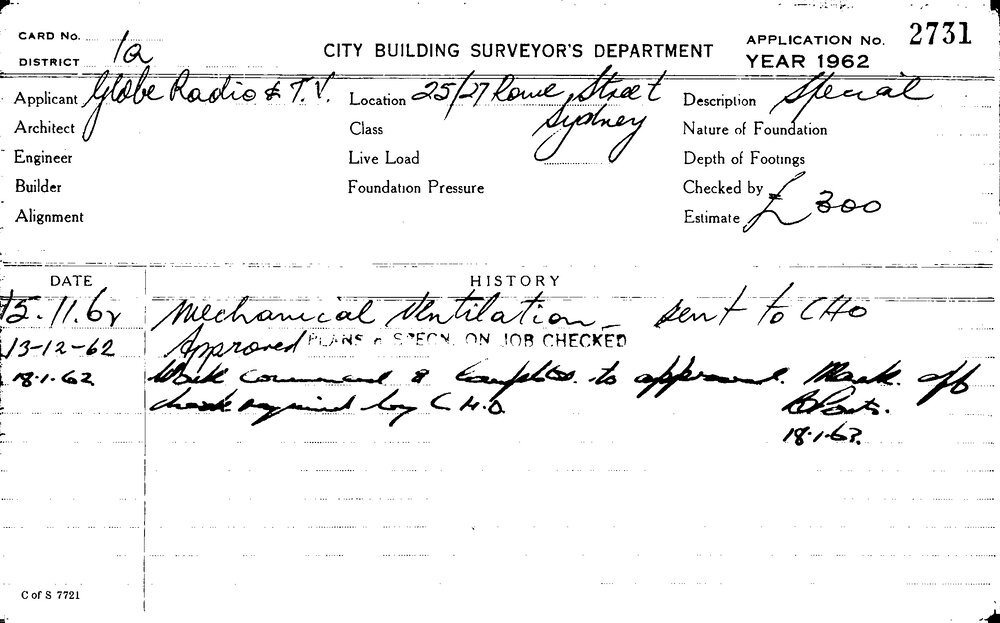 CARD No.
DISTRICT 1a
CITY BUILDING SURVEYOR'S DEPARTMENT
APPLICATION No. 2731
YEAR 1962
Applicant Globe Radio & T.V.
Location 25/27 Rowe Street Sydney
Description Special
Architect
Class
Nature of Foundation
Engineer
Live Load
Depth of Footings
Builder
Foundation Pressure
Checked by
Alignment
Estimate £300
DATE HISTORY
15.11.62 Mechanical Ventilation – sent to CHO
13-12-62 Approved PLANS & SPECN. ON JOB CHECKED
18.1.62 Work commenced & completed to approval. Mark off
check required by C.H.O.
18.1.63.
C of S 7721